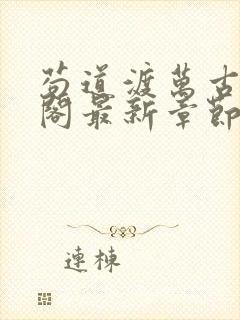 苟道渡萬古
閣最新章節
連棟